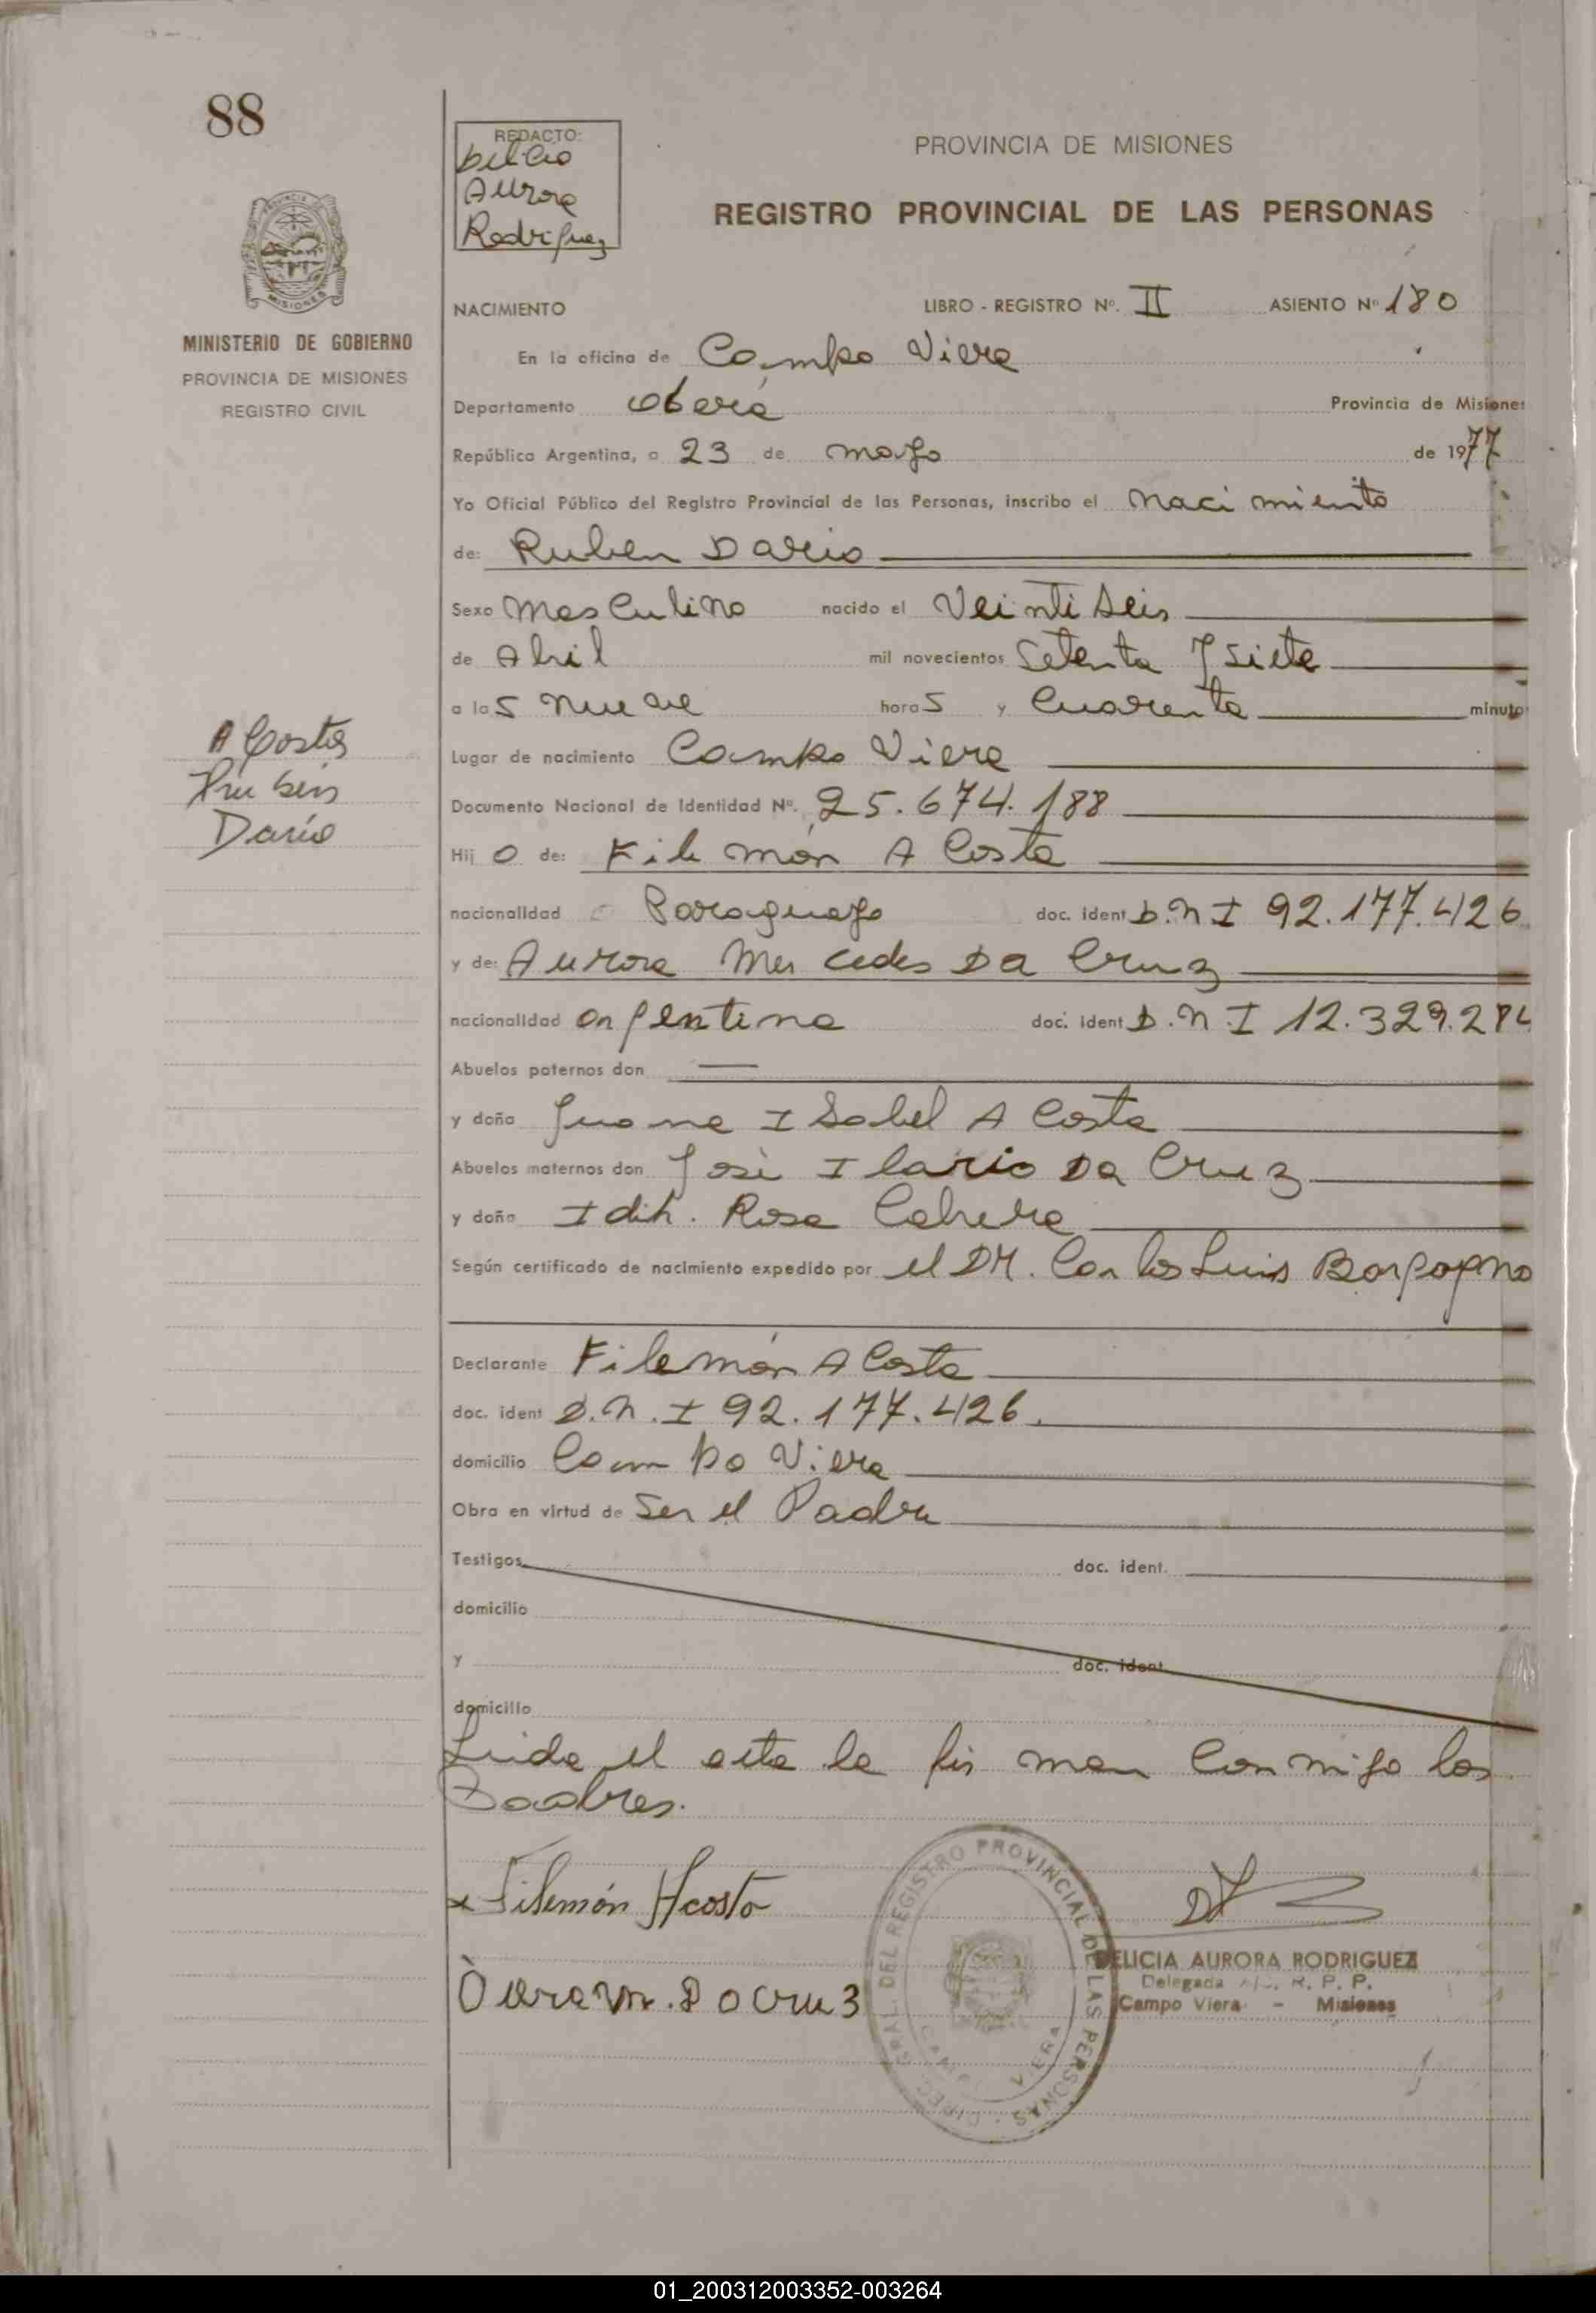 88
REDACTO:
Delicio
Aurora
Rodriguez
PROVINCIA DE MISIONES
REGISTRO PROVINCIAL DE LAS PERSONAS
MISIONES
MINISTERIO DE GOBIERNO
PROVINCIA DE MISIONES
REGISTRO CIVIL
NACIMIENTO LIBRO - REGISTRO Nº. II ASIENTO Nº 180
En la oficina de Campo Viera
Departamento Oberá Provincia de Misiones
República Argentina, a 23 de mayo de 1977
Yo Oficial Público del Registro Provincial de las Personas, inscribo el Nacimiento
de: Ruben Dario
Sexo Masculino nacido el Veintiseis
de Abril mil novecientos Setenta y siete
a las nueve horas y Cuarenta minutos
Acosta
Ruben
Darío
Lugar de nacimiento Campo Viera
Documento Nacional de Identidad Nº. 25.674.188
Hijo de: Filemón Acosta
nacionalidad Paraguayo doc. ident D.N.I 92.177.426
y de: Aurora Mercedes Da Cruz
nacionalidad argentina doc. ident D.N.I 12.329.284
Abuelos paternos don —
y doña Juana Isabel Acosta
Abuelos maternos don José Ilario Da Cruz
y doña Idih. Rosa Cabrera
Según certificado de nacimiento expedido por el DR. Carlos Luis Bargagno
Declarante Filemón Acosta
doc. ident D.N.I 92.177.426.
domicilio Campo Viera
Obra en virtud de Ser el Padre
Testigos doc. ident.
domicilio
y doc. ident.
domicilio
Leida el acta la firman conmigo los
Padres.
x Filemón Acosta
Aurora M. Da Cruz
DIREC. GRAL. DEL REGISTRO PROVINCIAL DE LAS PERSONAS
CAMPO VIERA
DELICIA AURORA RODRIGUEZ
Delegada R. P. P.
Campo Viera - Misiones
01_200312003352-003264